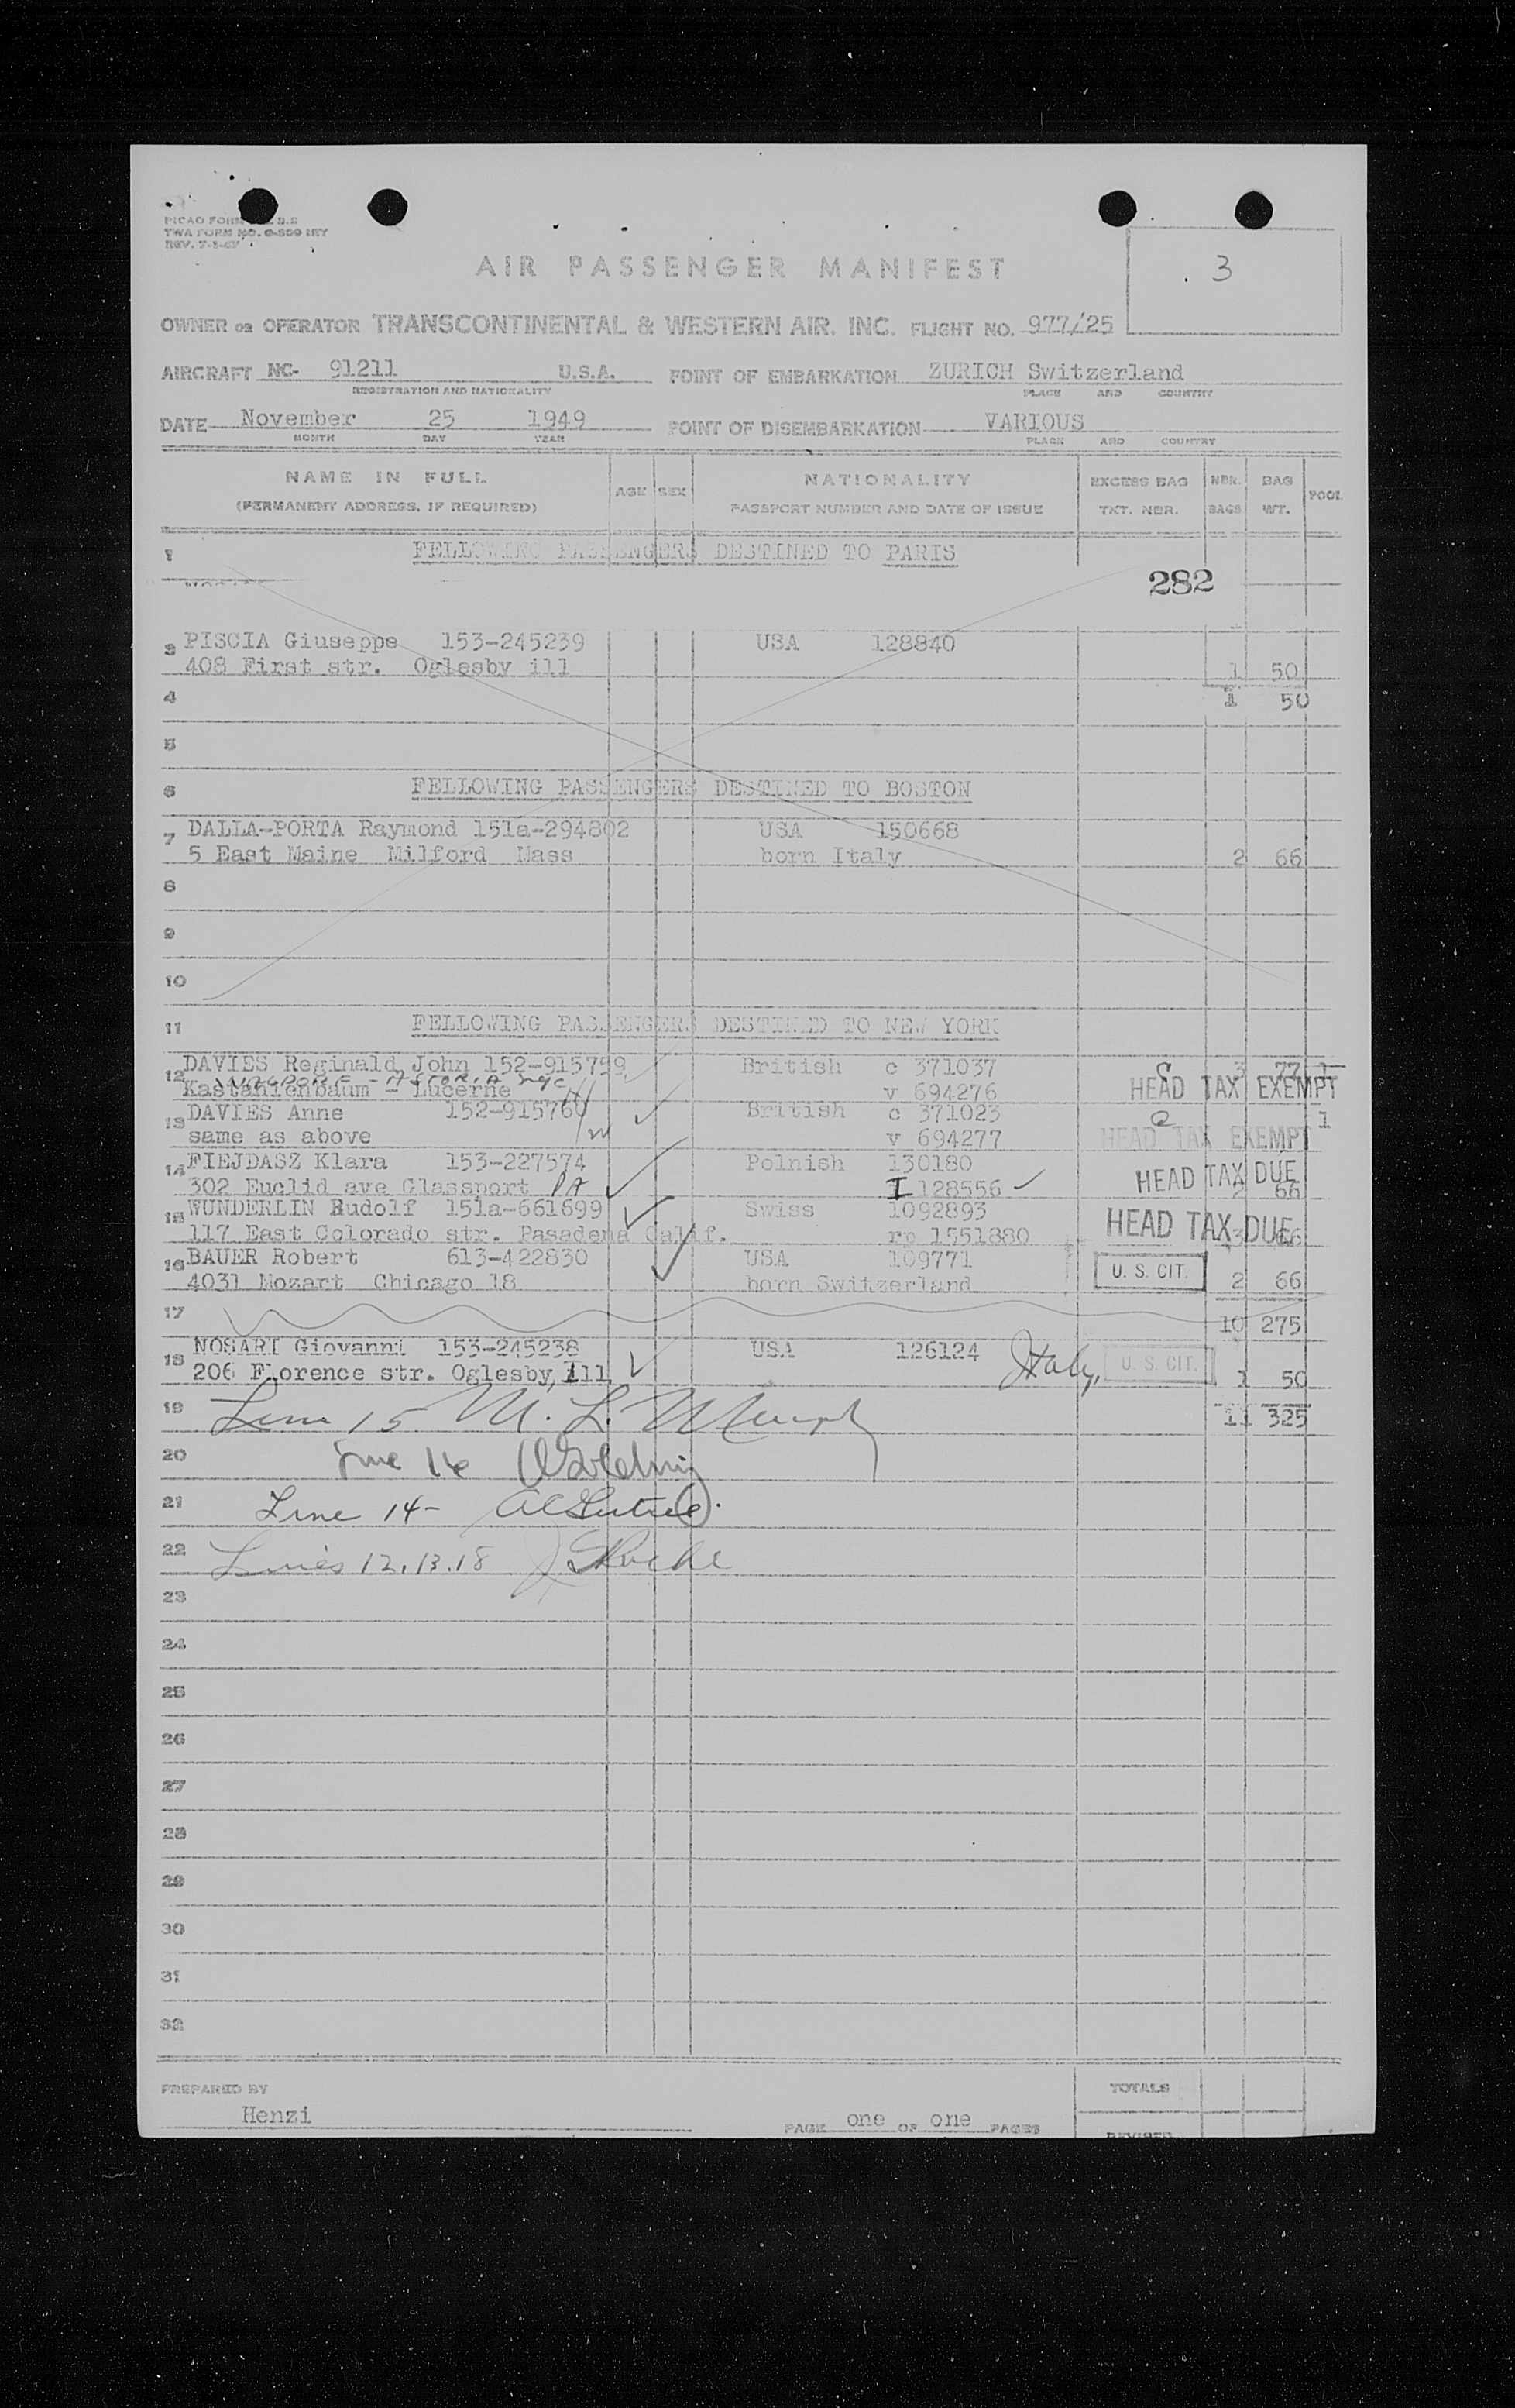 PICAO FORM
TWA FORM NO. 0-809 IRY
REV. 7-1-47
AIR PASSENGER MANIFEST
3
OWNER OR OPERATOR TRANSCONTINENTAL & WESTERN AIR, INC. FLIGHT NO. 977/25
AIRCRAFT NC- 91211 U.S.A. POINT OF EMBARKATION ZURICH Switzerland
REGISTRATION AND NATIONALITY PLACE AND COUNTRY
DATE November 25 1949 POINT OF DISEMBARKATION VARIOUS
MONTH DAY YEAR PLACE AND COUNTRY
NAME IN FULL AGE SEX NATIONALITY EXCESS BAG NBR. BAG POOL
(PERMANENT ADDRESS, IF REQUIRED) PASSPORT NUMBER AND DATE OF ISSUE TKT. NBR. BAGS WT.
1 FELLOWING PASSENGERS DESTINED TO PARIS
282
3 PISCIA Giuseppe 153-245239 USA 128840
408 First str. Oglesby ill 1 50
4 1 50
5
6 FELLOWING PASSENGERS DESTINED TO BOSTON
7 DALLA-PORTA Raymond 151a-294802 USA 150668
5 East Maine Milford Mass born Italy 2 66
8
9
10
11 FELLOWING PASSENGERS DESTINED TO NEW YORK
12 DAVIES Reginald John 152-915759 British c 371037 3 77 1
Kastanienbaum - Lucerne v 694276 HEAD TAX EXEMPT
13 DAVIES Anne 152-915760 British c 371023 1
same as above v 694277 HEAD TAX EXEMPT
14 FIEJDASZ Klara 153-227574 Polnish 130180 HEAD TAX DUE
302 Euclid ave Glassport PA I 128556 2 66
15 WUNDERLIN Rudolf 151a-661699 Swiss 1092893 HEAD TAX DUE
117 East Colorado str. Pasadena Calif. rp 1551880 3 66
16 BAUER Robert 613-422830 USA 109771 U. S. CIT.
4031 Mozart Chicago 18 born Switzerland 2 66
17 10 275
18 NOSARI Giovanni 153-245238 USA 126124 Italy, U. S. CIT.
206 Florence str. Oglesby, Ill 1 50
19 Line 15 M. L. Murphy 11 325
20 Line 16
21 Line 14-
22 Lines 12.13.18
23
24
25
26
27
28
29
30
31
32
PREPARED BY TOTALS
Henzi PAGE one OF one PAGES
REVISED